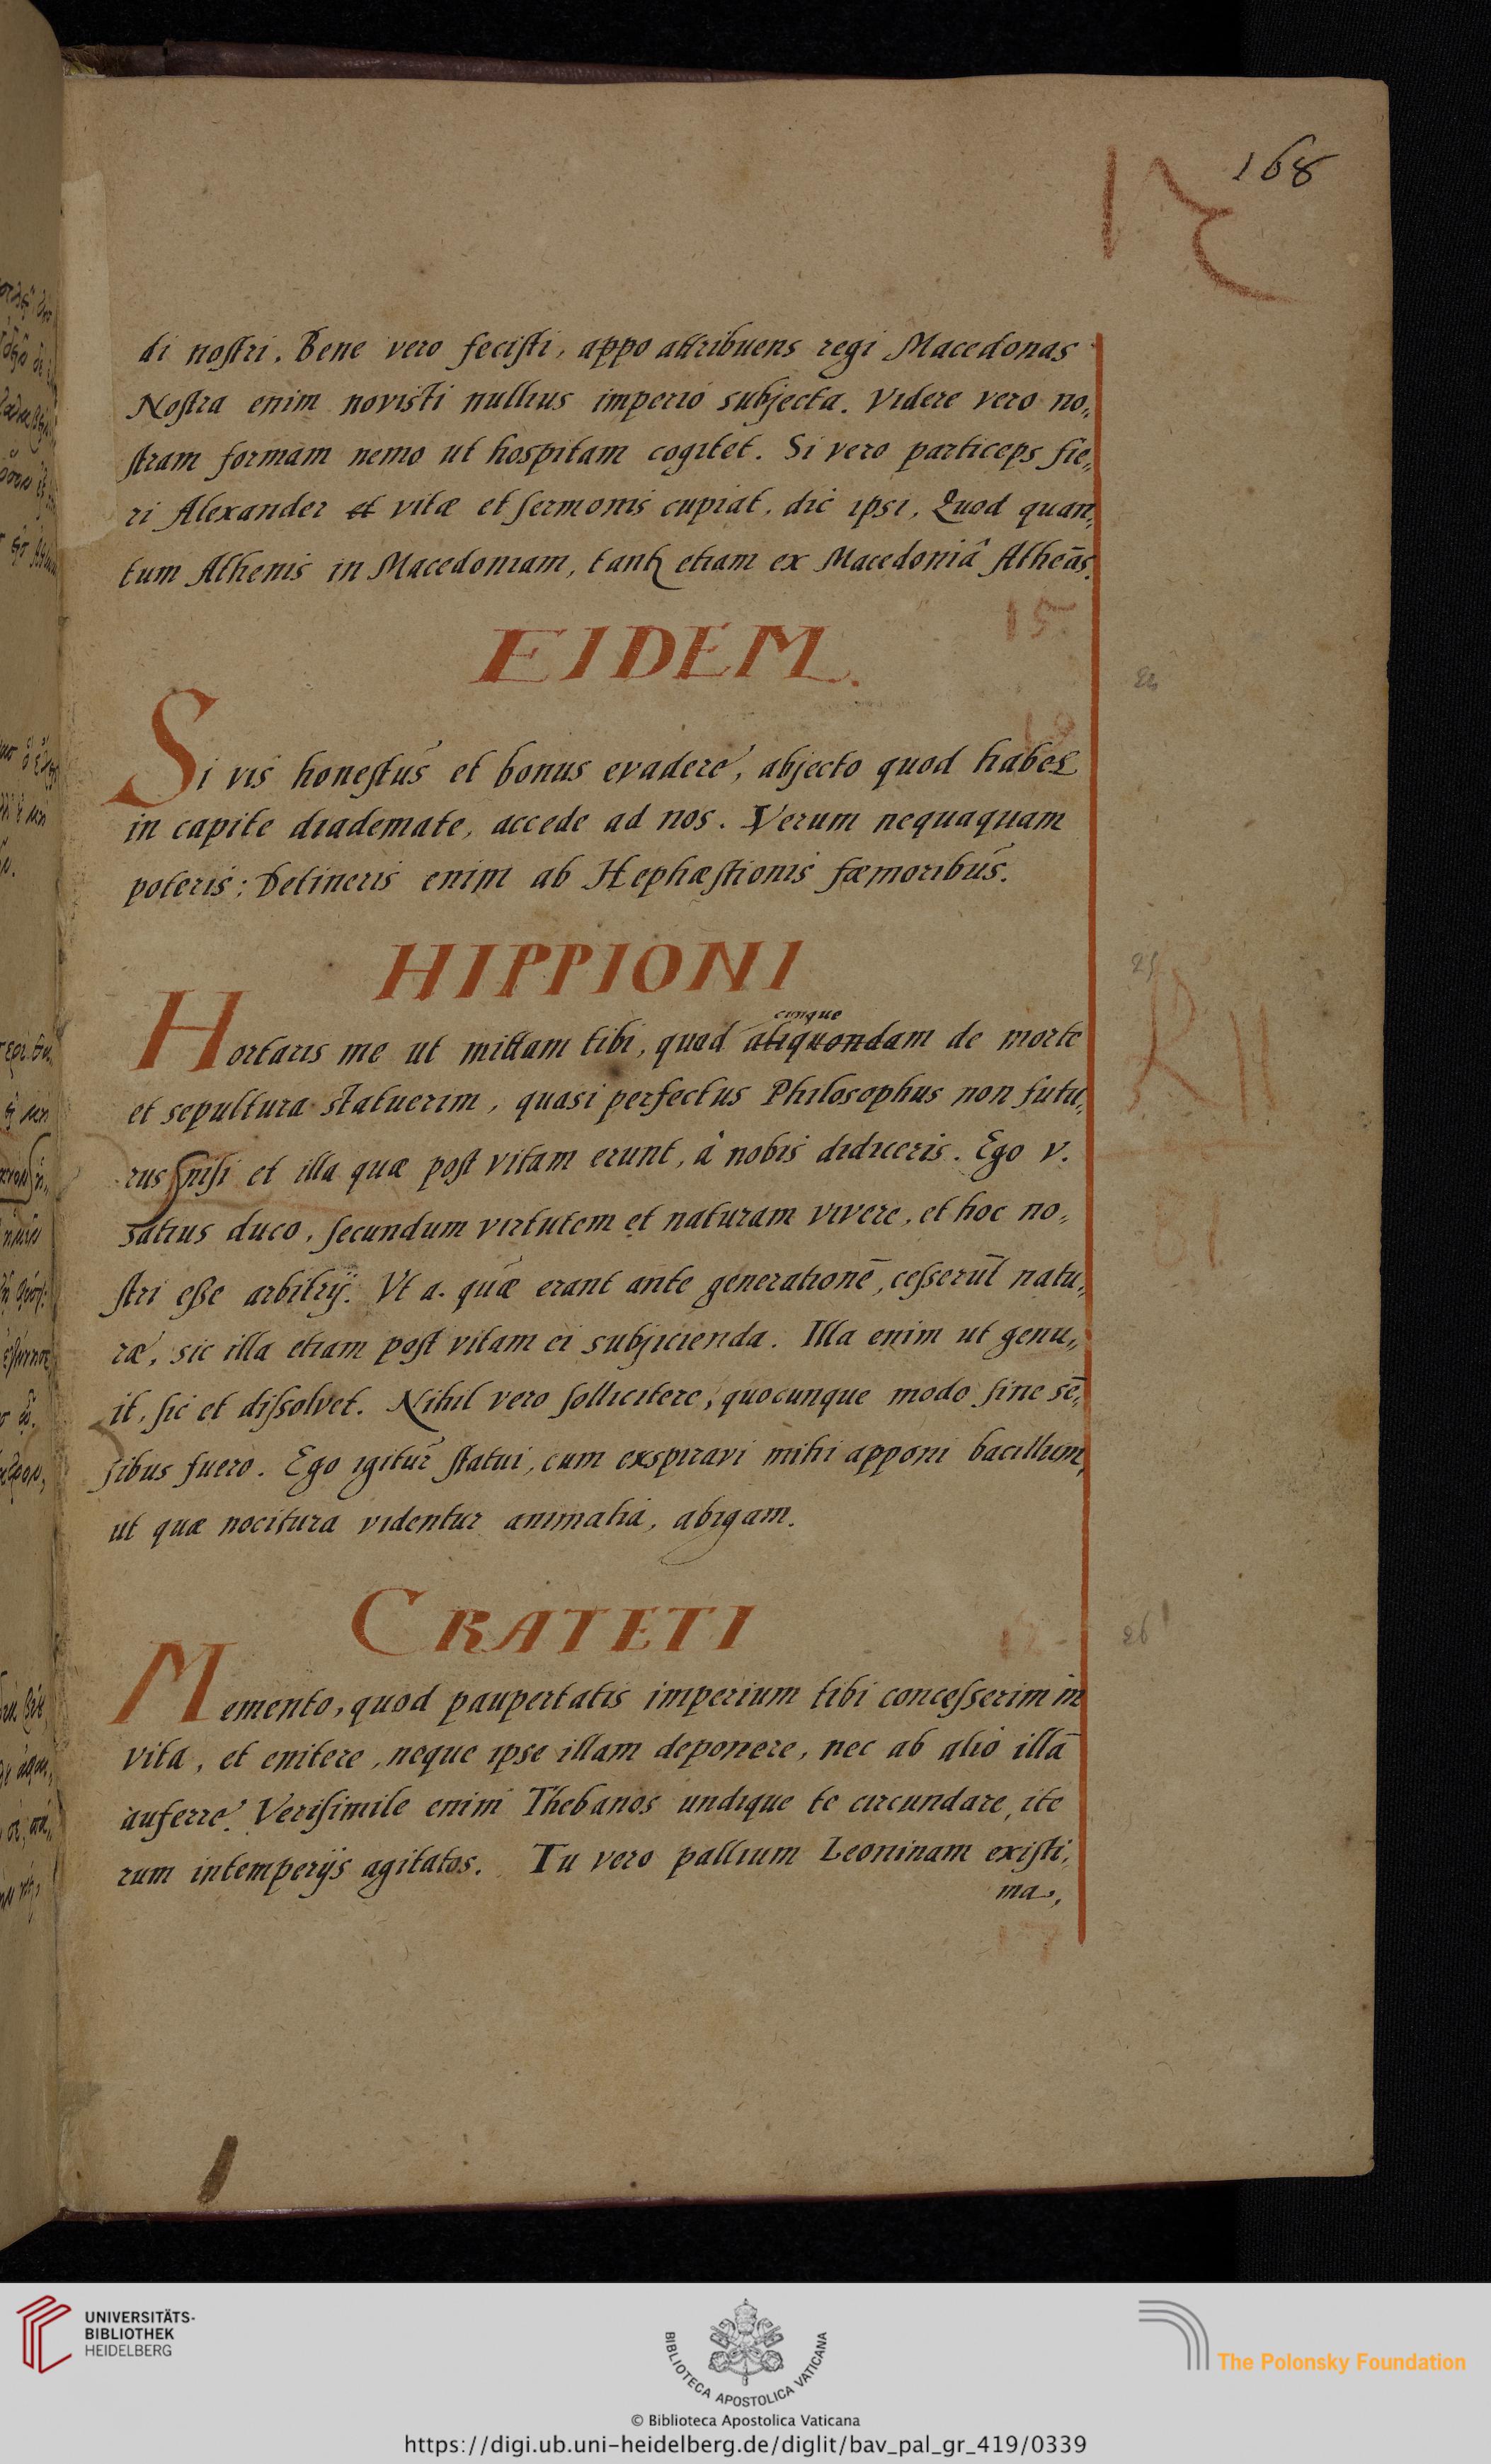 168
di nostri. Bene vero fecisti, appo attribuens regi Macedonas
Nostra enim novisti nullius imperio subjecta. Videre vero no„
stram formam nemo ut hospitam cogitet. Si vero particeps fie„
ri Alexander et vitæ et sermonis cupiat, dic ipsi, Quod quan„
tum Athenis in Macedoniam, tantũ etiam ex Macedoniâ Atheās.
15
EIDEM.
24
Si vis honestus et bonus evadere, abjecto quod habes
in capite diademate, accede ad nos. Verum nequaquam
poteris; Detineris enim ab Hephæstionis fœmoribus.
HIPPIONI
25
cunque
Hortaris me ut mittam tibi, quod aliquondam de morte
et sepultura statuerim, quasi perfectus Philosophus non futu„
rus nisi et illa quæ post vitam erunt, â nobis didiceris. Ego v.
satius duco, secundum virtutem et naturam vivere, et hoc no„
stri esse arbitrij. Vt a. quæ erant ante generationē, cesserūt natu„
ræ, sic illa etiam post vitam ei subjicienda. Illa enim ut genu„
it, sic et dissolvet. Nihil vero sollicitere, quocunque modo sine sē„
sibus fuero. Ego igitur statui, cum exspiravi mihi apponi bacillum,
ut quæ nocitura videntur animalia, abigam.
CRATETI
26
Memento, quod paupertatis imperium tibi concesserim in
vita, et enitere, neque ipse illam deponere, nec ab alio illā
auferre. Verisimile enim Thebanos undique te circundare, ite
rum intemperijs agitatos. Tu vero pallium Leoninam existi„
ma,
17
UNIVERSITÄTS-
BIBLIOTHEK
HEIDELBERG
BIBLIOTECA APOSTOLICA VATICANA
The Polonsky Foundation
© Biblioteca Apostolica Vaticana
https://digi.ub.uni-heidelberg.de/diglit/bav_pal_gr_419/0339